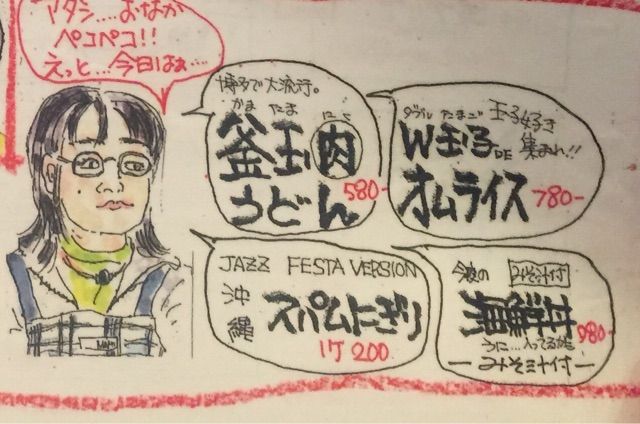 アタシ....おなか
ペコペコ!!
えっと...今日はぁ....
博多で大流行。
かま たま にく
釜玉肉
うどん
580-
ダブル たまご 玉子好き
W玉子DE 集まれ!!
オムライス 780-
JAZZ FESTA VERSION
沖縄
スパムにぎり
1ケ 200
今夜の みそ汁付
海鮮丼
980-
うに...入ってるかも
ーみそ汁付ー